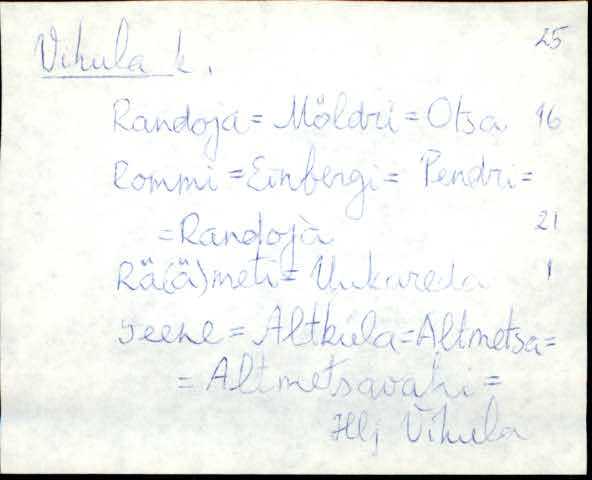 Vihula k. 25
Randoja = Möldri = Otsa 16
Rommi = Einbergi = Pendri =
= Randoja 21
Rä(ä)meti = Unkareda 1
Seene = Altküla = Altmetsa =
= Altmetsavahi =
Hlj Vihula